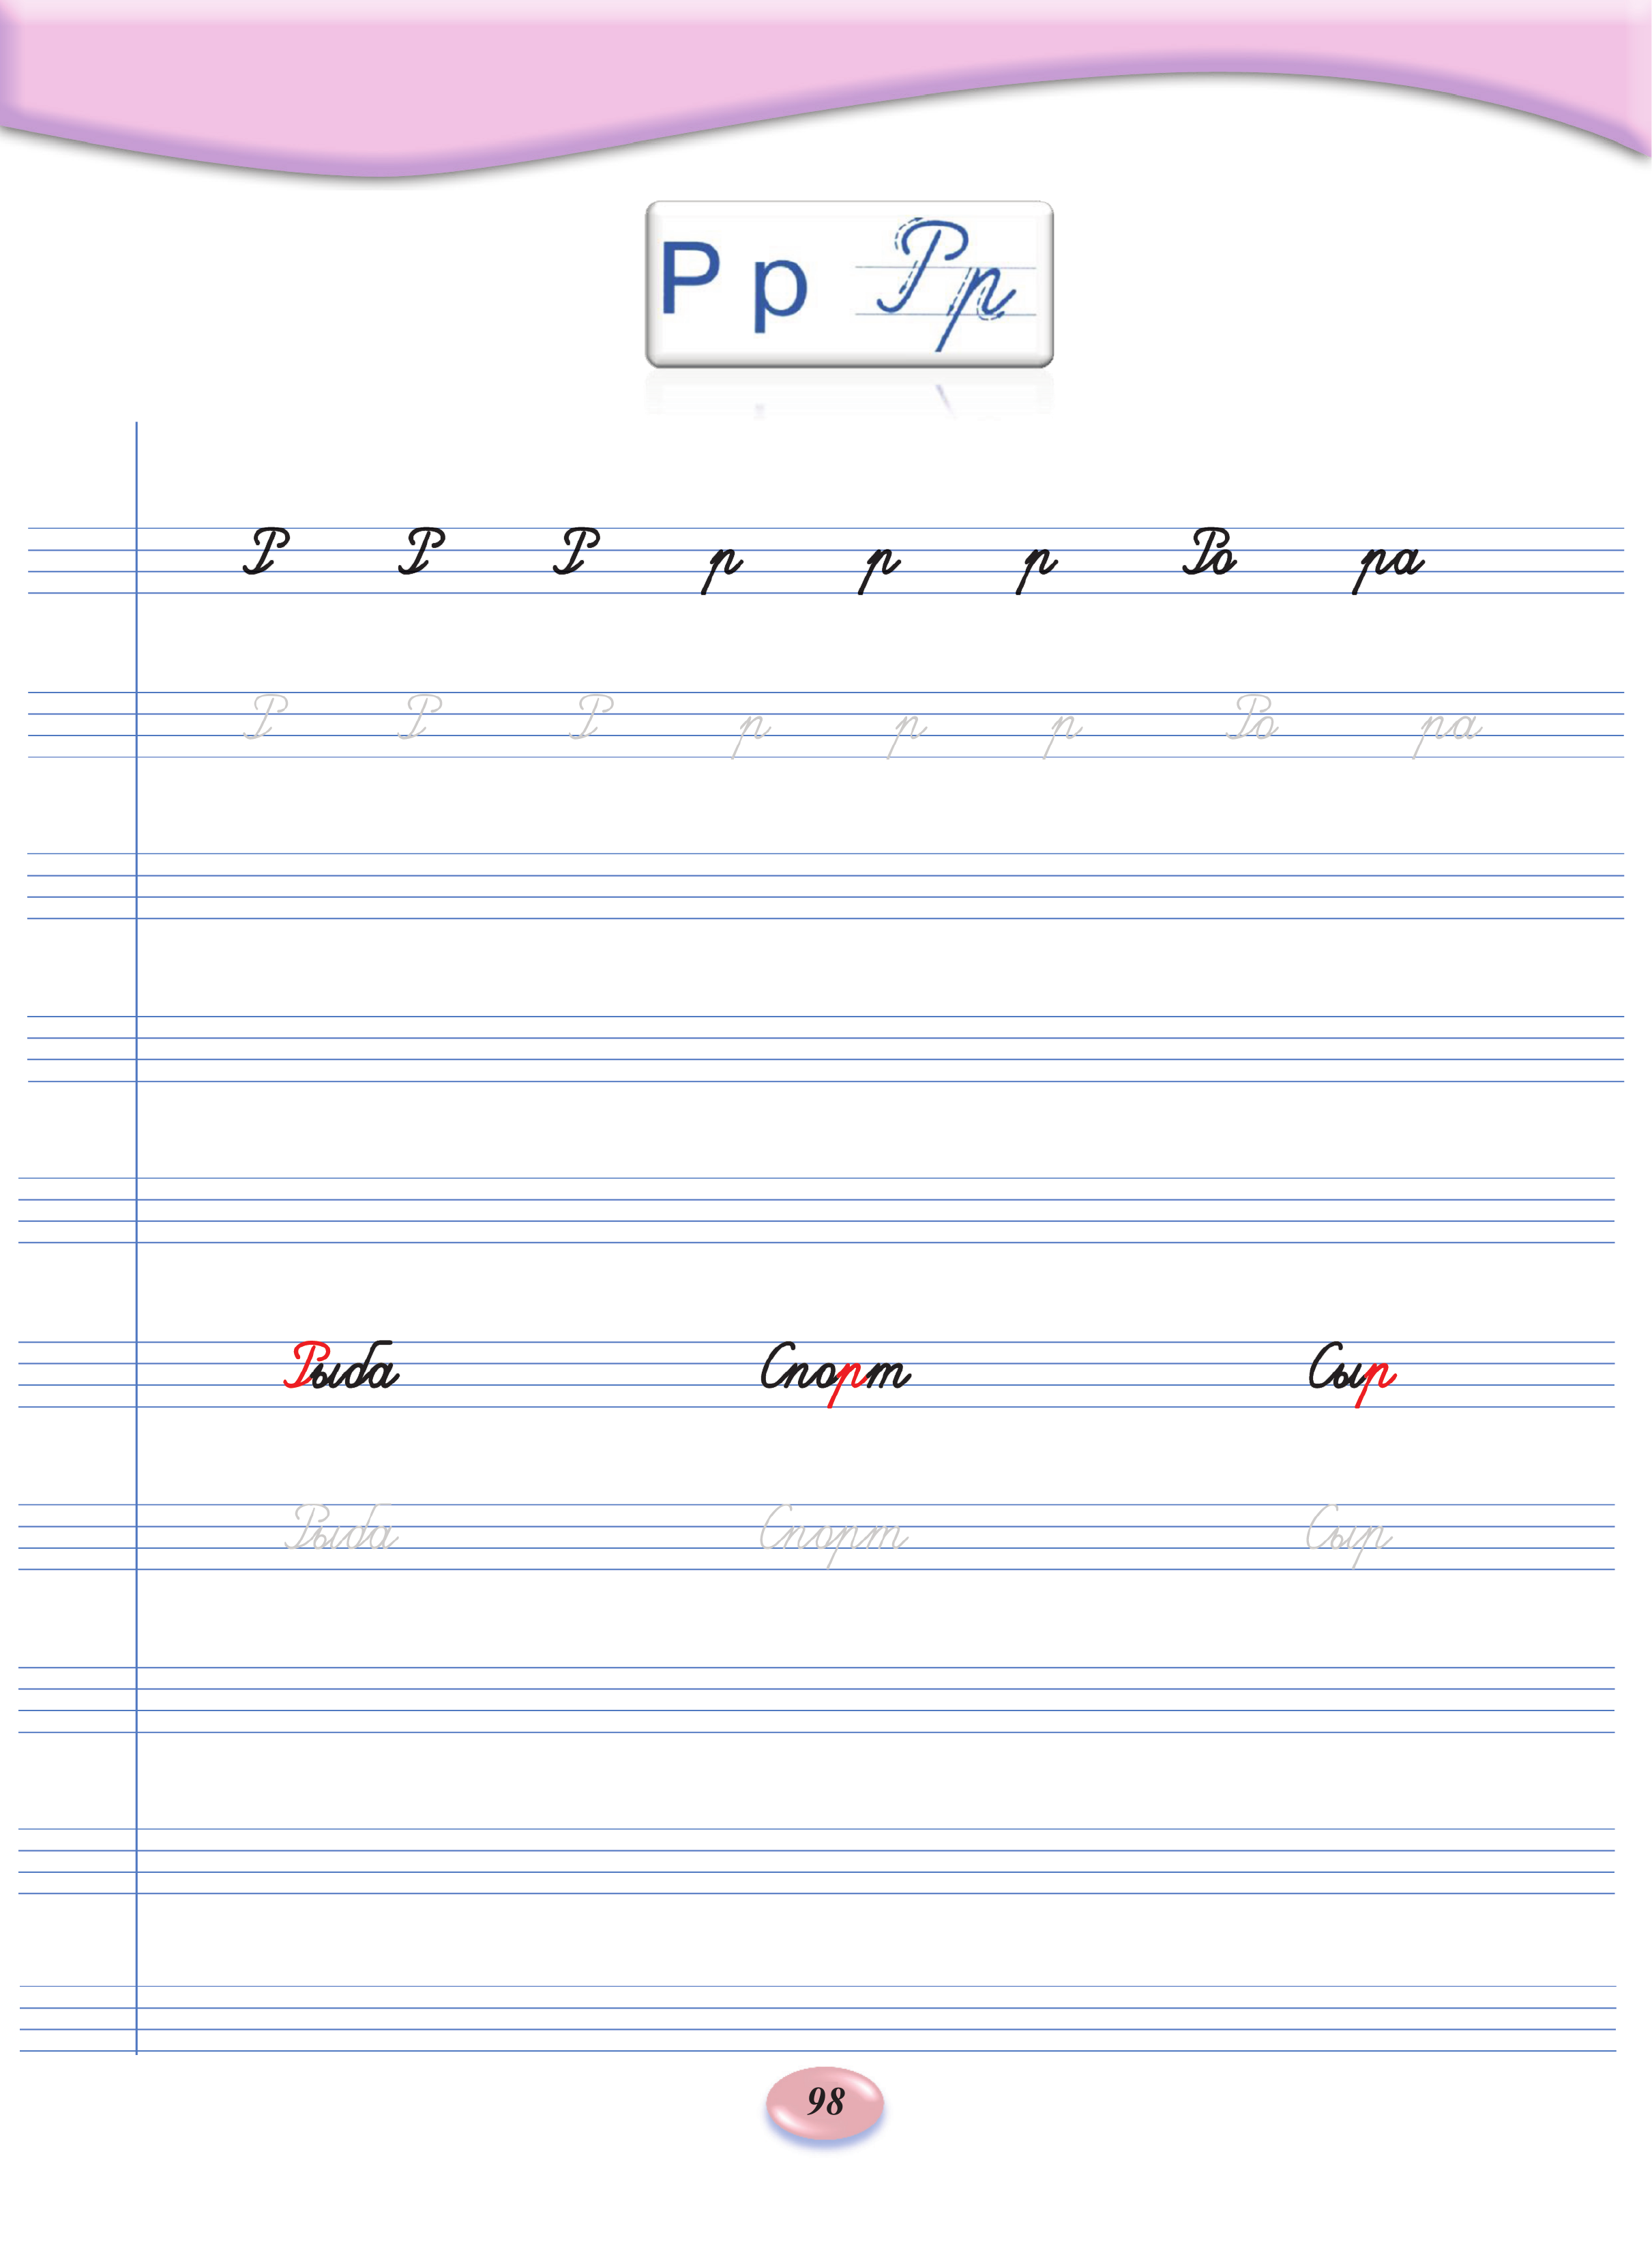 Р р Р р
Р Р Р р р р Ро ра
Р Р Р р р р Ро ра
Рыба Спорт Сыр
Рыба Спорт Сыр
98